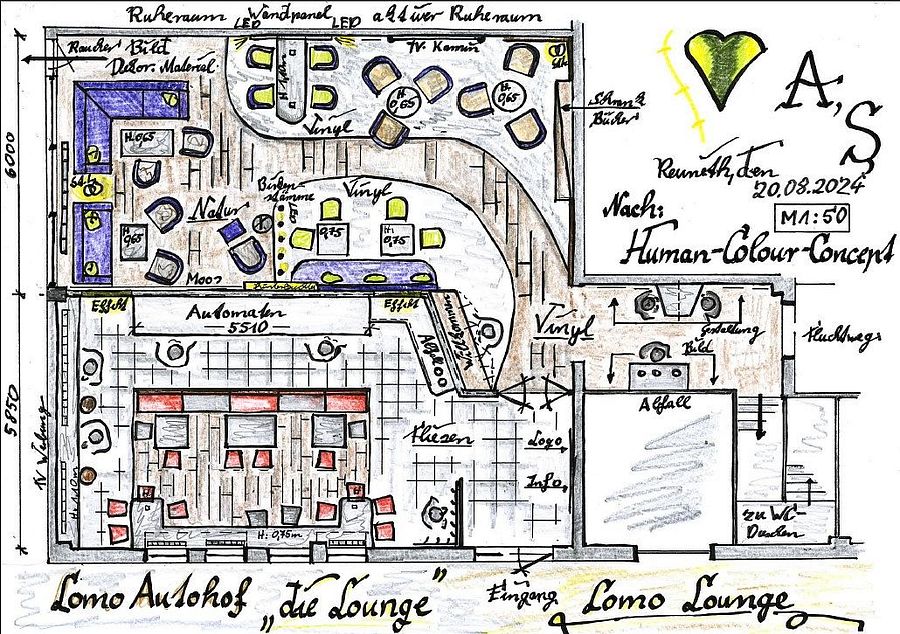 Ruheraum Wandpanel aktiver Ruheraum
LED LED
Raucher Bild
Dekor. Material
TV. Kamin
H: 0,65
H: 0,65
H: 0,65
Schrank
Bücher
Vinyl
A, S
Reuneth, den
20.08.2024
M 1:50
Nach:
Human-Colour-Concept
6000
Natur
Birken-
stämme
Vinyl
0,75
H: 0,75
0,65
Moos
Effekt
Effekt
Automaten
5510
Willkommen
Vinyl
Gestaltung
Bild
Fluchtweg
Abfall
5850
TV Werbung
Fliesen
Logo
Info
H: 0,75m
zu WC-
Duschen
Eingang
Lomo Autohof „die Lounge"
Lomo Lounge